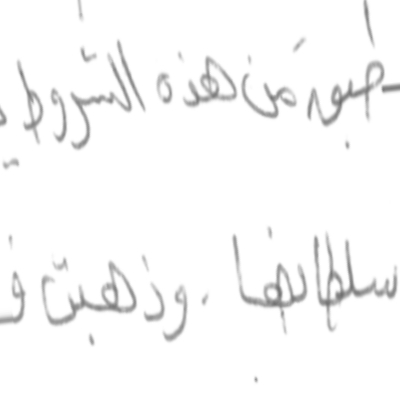 من هذه الشروط
سلطانها . وذهبت